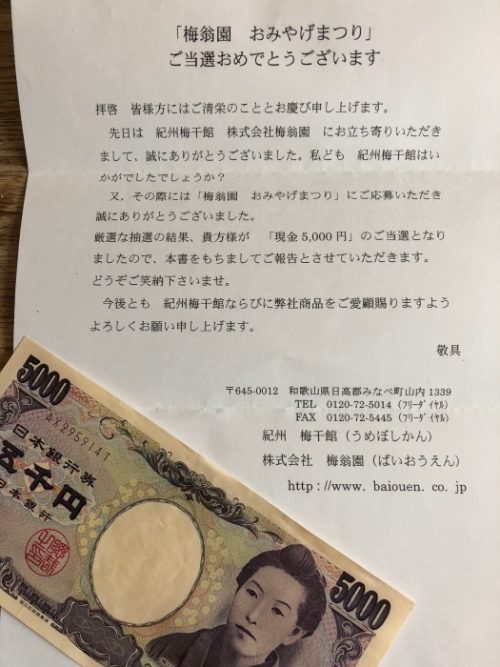 「梅翁園　おみやげまつり」
ご当選おめでとうございます
拝啓　皆様方にはご清栄のこととお慶び申し上げます。
先日は　紀州梅干館　株式会社梅翁園　にお立ち寄りいただき
まして、誠にありがとうございました。私ども　紀州梅干館はい
かがでしたでしょうか？
又、その際には「梅翁園　おみやげまつり」にご応募いただき
誠にありがとうございました。
厳選な抽選の結果、貴方様が　「現金5,000円」のご当選となり
ましたので、本書をもちましてご報告とさせていただきます。
どうぞご笑納下さいませ。
今後とも　紀州梅干館ならびに弊社商品をご愛顧賜りますよう
よろしくお願い申し上げます。
敬具
〒645-0012　和歌山県日高郡みなべ町山内1339
TEL　0120-72-5014（ﾌﾘｰﾀﾞｲﾔﾙ）
FAX　0120-72-5445（ﾌﾘｰﾀﾞｲﾔﾙ）
紀州　梅干館（うめぼしかん）
株式会社　梅翁園（ばいおうえん）
http://www.baiouen.co.jp
5000
AX295914T
日本銀行券
五千円
日本銀行
5000